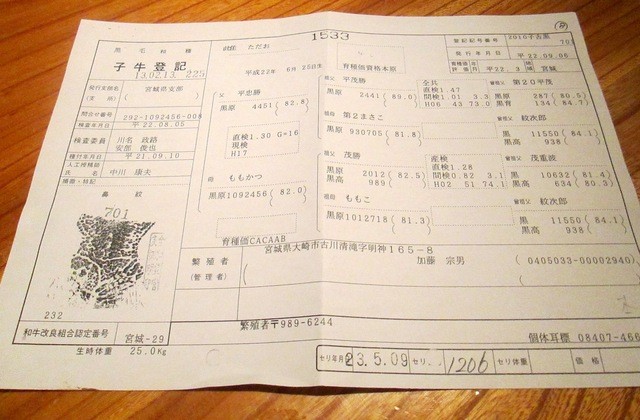 1533
黒毛和種
ただお
登記記号番号
2010子古黒
701
子牛登記
育種価資格本原
発行年月日
平22.09.06
平22.3
宮城
平成22年 6月25日生
発行支部名
(支所)
宮城県支部
父
平忠勝
黒原 4451 (82.8)
直検1.30 G-16
現検
H17
祖父
平茂勝
黒原 2441 (89.0)
全兵
直検1.47
間検1.01 3.3
H06 43 73.0
第20平茂
黒原 287 (80.5)
黒育 134 (84.7)
問合せ番号
292-1092456-008
検査年月日
平22.08.05
第2まさこ
黒原 930705 (81.8)
紋次郎
黒 11550 (84.1)
黒高 938
検査委員
川名 政路
安部 俊也
種付年月日
平21.09.10
人工授精師
氏名
中川 康夫
摘要・特記
母
ももかつ
黒原1092456 (82.0)
茂勝
黒原 2012 (82.5)
黒高 989
産検
直検1.28
間検0.82 3.1
H02 51 74.1
茂重波
黒 10632 (81.4)
黒高 634 (80.3)
ももこ
黒原1012718 (81.3)
紋次郎
黒 11550 (84.1)
黒 938
鼻紋
701
育種価CACAAB
232
繁殖者
(管理者)
宮城県大崎市古川清滝字明神165-8
加藤 宗男
(0405033-00002940)
和牛改良組合認定番号
宮城-29
繁殖者〒989-6244
生時体重 25.0Kg
個体耳標 08407-466
セリ年月
23.5.09
セリ
1206
セリ体重
価格